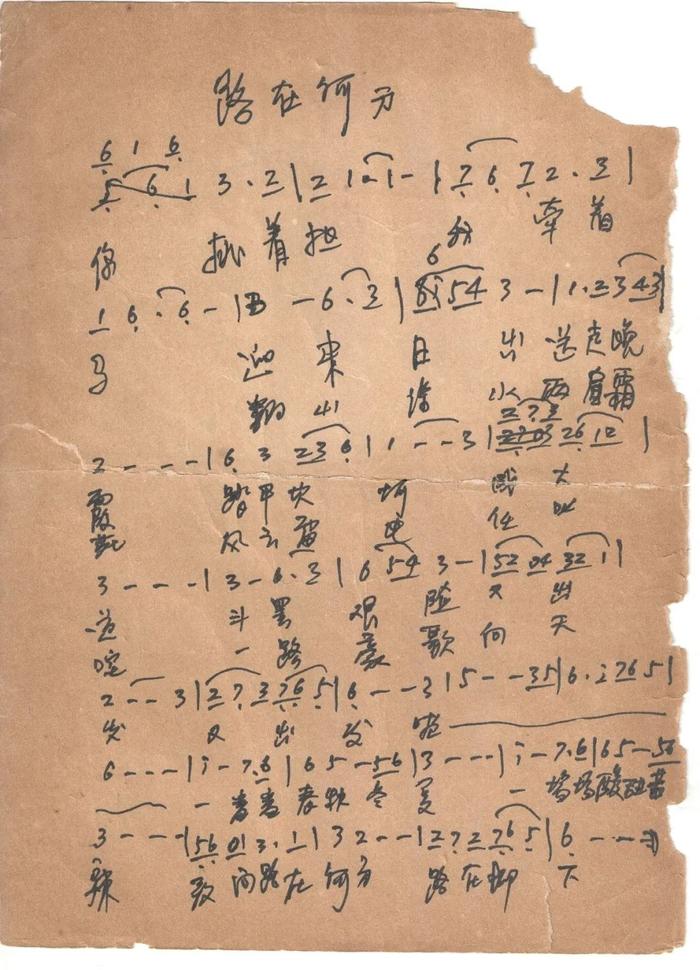 路在何方
6 1 6
5 6 1 3·2|2 1·1-|7 6 7 2·3|
你 挑着担 我 牵着
6
1 6·6-|3-6·3|6i54 3-|1·2343|
马 迎来日出送走晚
翻山涉水两肩霜
2 7 3
2---|6 3 236|1--3|2703 2612|
霞 踏平坎坷成大
花 风云 任叱
3---|3-6·3|6 54 3-|52 04 32 1|
道 斗罢艰险又出
咤 一路豪歌向天
2--3|27 3765|6--3|5--35|6·i 765|
发 又出发 啦
6---|i-7·6|65-56|3---|i-7·6|65-56
一番番春秋冬夏 一场场酸甜苦
3---|56 01 3·1|32--|272765|6---‖
辣 敢问路在何方 路在脚下